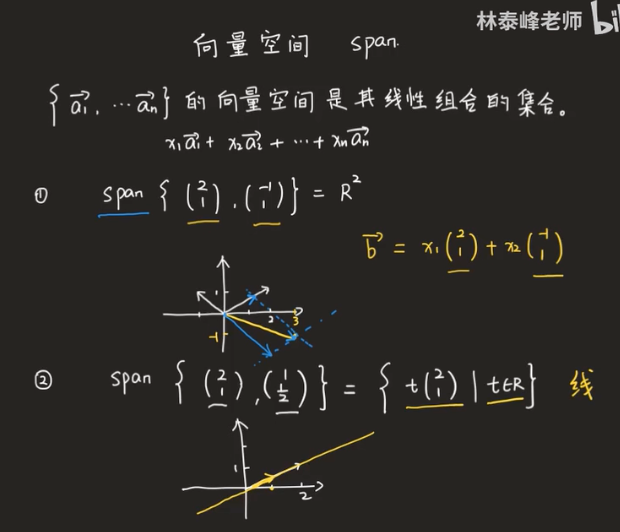 林泰峰老师 bi
向量空间 span.
{a₁⃗, ⋯ aₙ⃗} 的向量空间是其线性组合的集合。
x₁a₁⃗ + x₂a₂⃗ + ⋯ + xₙaₙ⃗
① span { (2 1), (-1 1) } = R²
b⃗ = x₁(2 1) + x₂(-1 1)
1 2 3
-1
② span { (2 1), (1 1/2) } = { t(2 1) | t∈R } 线
1
2